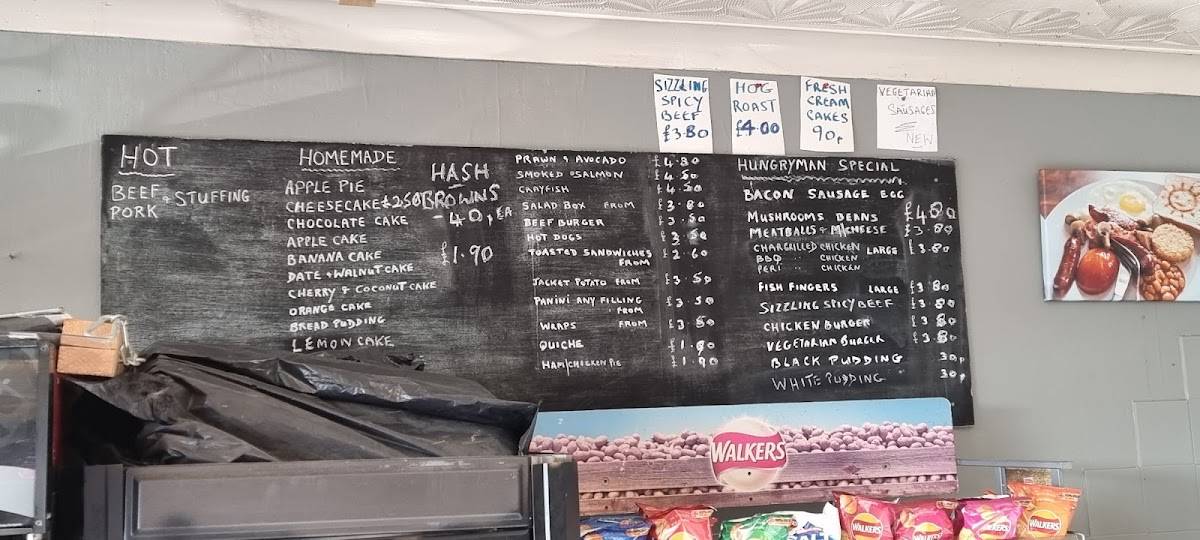 SIZZLING
SPICY
BEEF
£3.80
HOG
ROAST
£4.00
FRESH
CREAM
CAKES
90p
VEGETARIAN
SAUSAGES
NEW
HOT
BEEF + STUFFING
PORK
HOMEMADE
APPLE PIE
CHEESECAKE £2.60
CHOCOLATE CAKE
APPLE CAKE
BANANA CAKE
DATE + WALNUT CAKE
CHERRY & COCONUT CAKE
ORANGE CAKE
BREAD PUDDING
LEMON CAKE
HASH
BROWNS
-40p EA
£1.90
PRAWN & AVOCADO £4.80
SMOKED SALMON £4.50
CRAYFISH £4.50
SALAD BOX FROM £3.80
BEEF BURGER £3.50
HOT DOGS £3.50
TOASTED SANDWICHES £2.60
FROM
JACKET POTATO FROM £3.50
PANINI ANY FILLING £3.50
FROM
WRAPS FROM £3.50
QUICHE £1.90
HAM/CHICKEN PIE £1.90
HUNGRYMAN SPECIAL
BACON SAUSAGE EGG
MUSHROOMS BEANS £4.80
MEATBALLS & M/CHEESE £3.80
CHARGRILLED CHICKEN LARGE £3.80
BBQ CHICKEN
PERI " CHICKEN
FISH FINGERS LARGE £3.80
SIZZLING SPICY BEEF £3.80
CHICKEN BURGER £3.80
VEGETARIAN BURGER £3.80
BLACK PUDDING 30p
WHITE PUDDING 30p
WALKERS
WALKERS
WALKERS
WALKERS
WALKERS